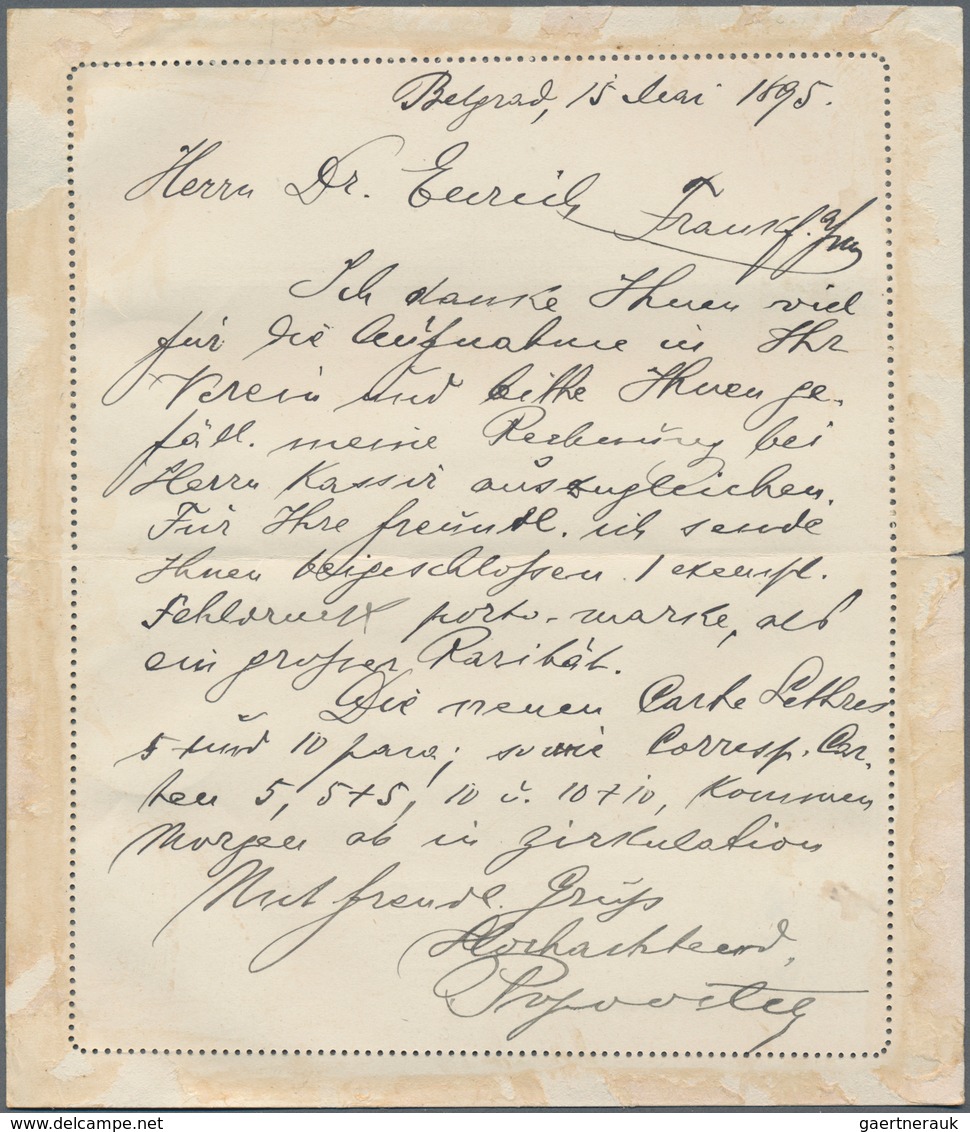 Belgrad, 15 Mai 1895.
Herrn Dr.
Frankf. a/m
Ich danke Ihnen viel
für die Aufnahme in Ihr
Verein und bitte Ihnen ge-
fäll. meine Rechnung bei
Herrn Kassir auszugleichen.
Für Ihre freundl. ich sende
Ihnen beigeschloßen 1 exempl.
Fehldruck porto-marke, als
ein großer Rarität.
Die neuen Carte Lettres
5 und 10 para; sowie Corresp. Car-
ten 5, 5+5, 10 u. 10+10, kommen
Morgen ab in Zirkulation
Mit freudl. Gruß
Hochachtend,
gaertnerauk / delcampe.net